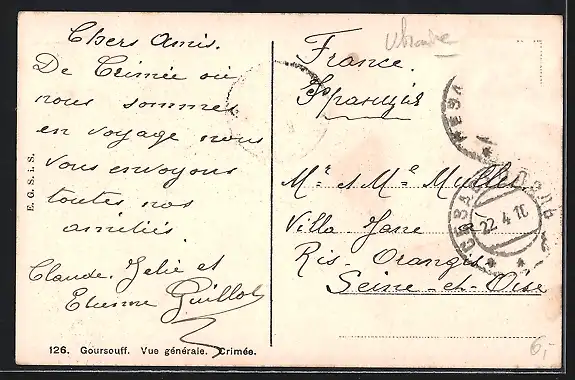 Chers Amis.
De Crimée où
nous sommes
en voyage nous
vous envoyons
toutes nos
amitiés.
Claude, Jelie et
Etienne Guillot
E. G. S. i. S.
126. Goursouff. Vue générale. Crimée.
France.
Франція
Mr et Me Muller
Villa Jane à
Ris-Orangis
Seine-et-Oise
СЕВАСТОПОЛЬ
22.4.10
6,-